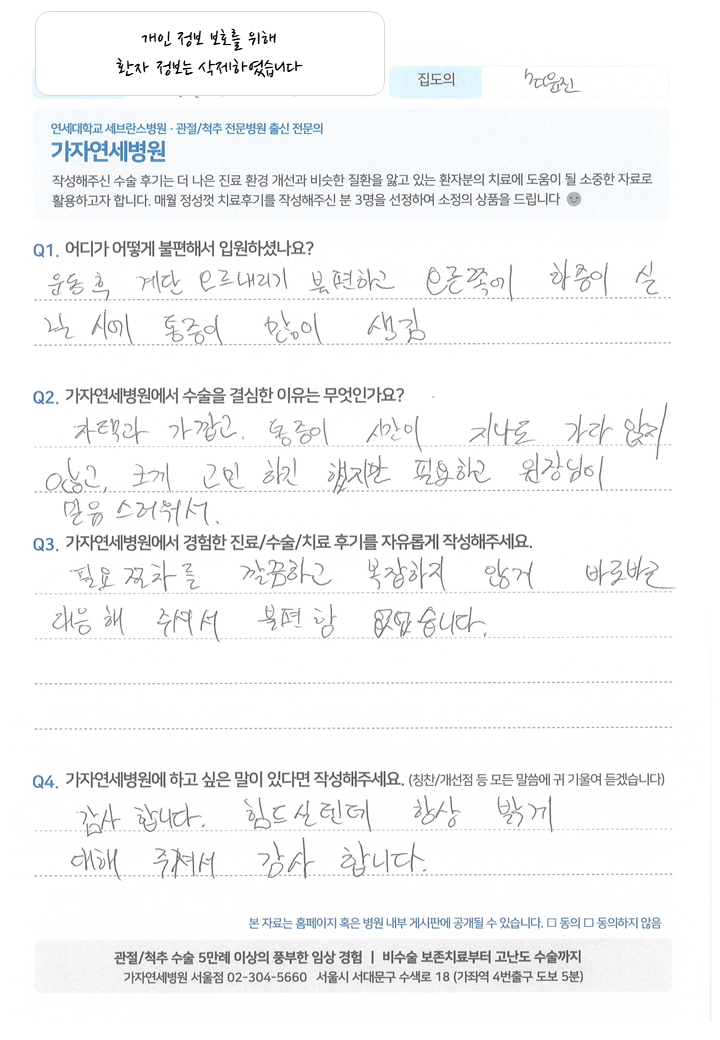 개인 정보 보호를 위해
환자 정보는 삭제하였습니다
집도의
윤진
연세대학교 세브란스병원 · 관절/척추 전문병원 출신 전문의
가자연세병원
작성해주신 수술 후기는 더 나은 진료 환경 개선과 비슷한 질환을 앓고 있는 환자분의 치료에 도움이 될 소중한 자료로
활용하고자 합니다. 매월 정성껏 치료후기를 작성해주신 분 3명을 선정하여 소정의 상품을 드립니다
Q1. 어디가 어떻게 불편해서 입원하셨나요?
운동 후 계단 오르내리기 불편하고 오른쪽에 하중이 실
릴 시에 통증이 많이 생김
Q2. 가자연세병원에서 수술을 결심한 이유는 무엇인가요?
자택과 가깝고. 통증이 시간이 지나도 가라 앉지
않고, 크게 고민 하긴 했지만 필요하고 원장님이
믿음 스러워서.
Q3. 가자연세병원에서 경험한 진료/수술/치료 후기를 자유롭게 작성해주세요.
필요 절차를 깔끔하고 복잡하지 않게 바로바로
대응 해 주셔서 불편함 없었습니다.
Q4. 가자연세병원에 하고 싶은 말이 있다면 작성해주세요. (칭찬/개선점 등 모든 말씀에 귀 기울여 듣겠습니다)
감사 합니다. 힘드실텐데 항상 밝게
대해 주셔서 감사 합니다.
본 자료는 홈페이지 혹은 병원 내부 게시판에 공개될 수 있습니다. □ 동의 □ 동의하지 않음
관절/척추 수술 5만례 이상의 풍부한 임상 경험 | 비수술 보존치료부터 고난도 수술까지
가자연세병원 서울점 02-304-5660 서울시 서대문구 수색로 18 (가좌역 4번출구 도보 5분)